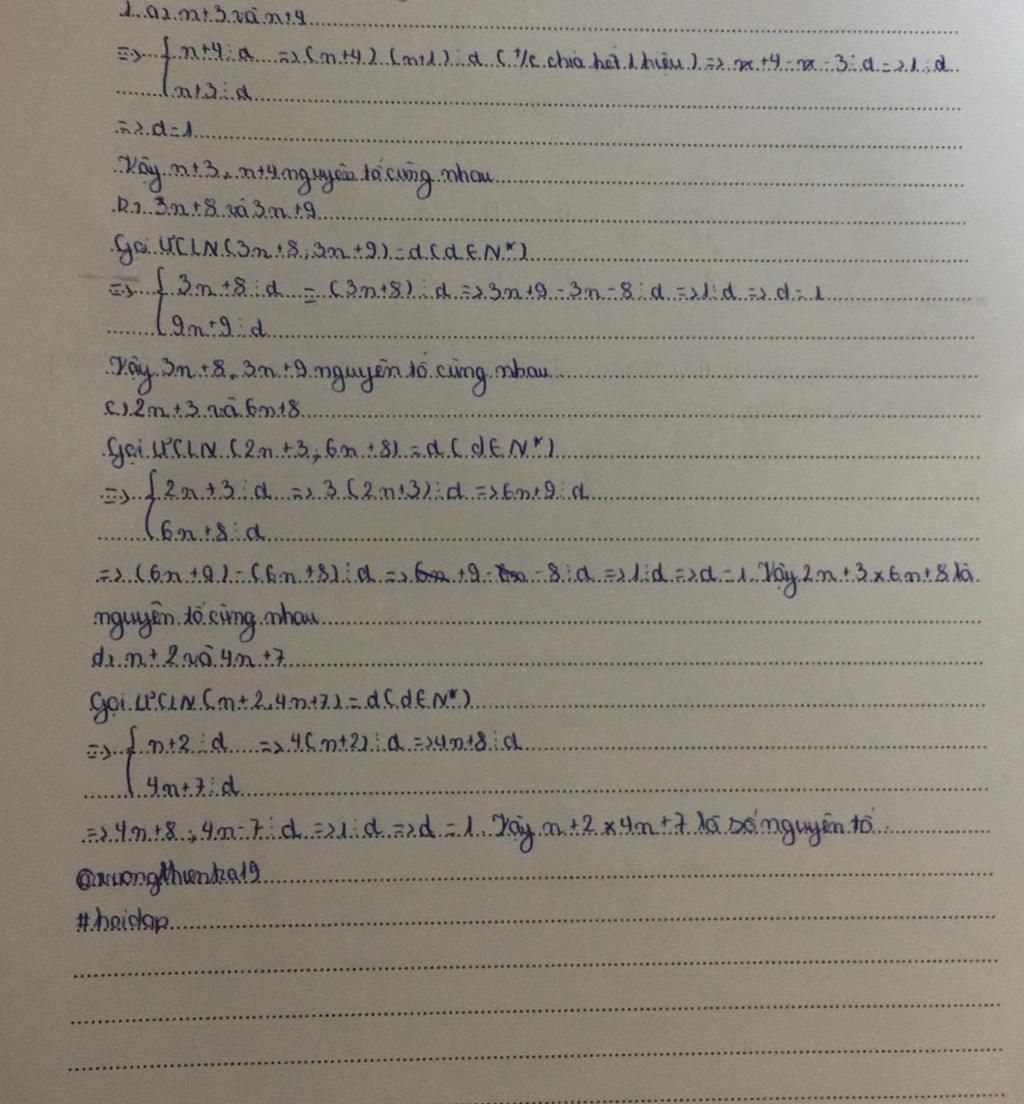 1. a, n+3 và n+4
=> { n+4⋮d => (n+4) (n+1)⋮d ( t/c chia hết 1 hiệu) => n+4-n-3⋮d => 1⋮d
n+3⋮d
=> d=1
Vậy n+3, n+4 nguyên tố cùng nhau
b, 3n+8 và 3n+9
Gọi ƯCLN (3n+8; 3n+9)=d (d∈N*)
=> { 3n+8⋮d = (3n+8)⋮d => 3n+9-3n-8⋮d => 1⋮d => d=1
9n+9⋮d
Vậy 3n+8, 3n+9 nguyên tố cùng nhau
c) 2n+3 và 6n+8
Gọi ƯCLN (2n+3; 6n+8)=d (d∈N*)
=> { 2n+3⋮d => 3(2n+3)⋮d => 6n+9⋮d
6n+8⋮d
=> (6n+9)-(6n+8)⋮d => 6n+9-6n-8⋮d => 1⋮d => d=1. Vậy 2n+3 x 6n+8 là
nguyên tố cùng nhau
d, n+2 và 4n+7
Gọi ƯCLN (n+2, 4n+7)=d (d∈N*)
=> { n+2⋮d => 4(n+2)⋮d => 4n+8⋮d
4n+7⋮d
=> 4n+8; 4n-7⋮d => 1⋮d => d=1. Vậy n+2 x 4n+7 là số nguyên tố
#hoidap